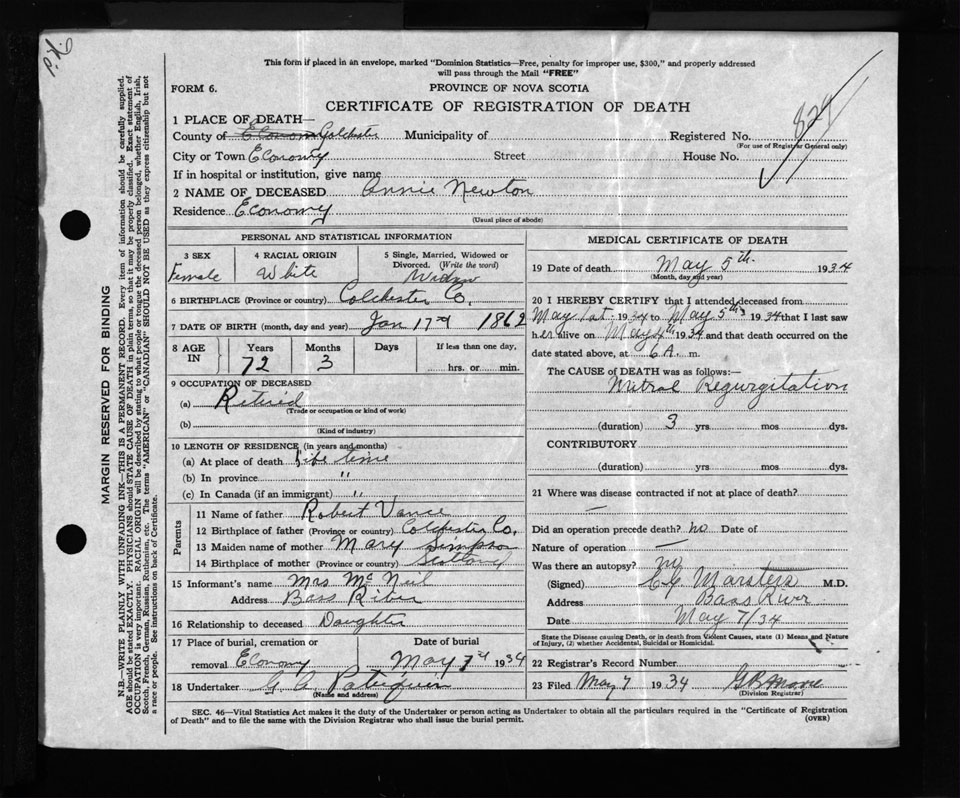 This form if placed in an envelope, marked "Dominion Statistics—Free, penalty for improper use, $300," and properly addressed
will pass through the Mail "FREE"
FORM 6.
PROVINCE OF NOVA SCOTIA
CERTIFICATE OF REGISTRATION OF DEATH
1 PLACE OF DEATH—
County of Colchester Municipality of Registered No. 824
(For use of Registrar General only)
City or Town Economy Street House No.
If in hospital or institution, give name
2 NAME OF DECEASED Annie Newton
Residence Economy
(Usual place of abode)
MARGIN RESERVED FOR BINDING
N.B.—WRITE PLAINLY WITH UNFADING INK—THIS IS A PERMANENT RECORD. Every item of information should be carefully supplied.
AGE should be stated EXACTLY. PHYSICIANS should STATE CAUSE OF DEATH in plain terms, so that it may be properly classified. Exact statement of
OCCUPATION is very important. RACIAL ORIGIN will be described by stating to what people or tongue the deceased person belonged, whether English, Irish,
Scotch, French, German, Russian, Ruthenian, etc. The terms "AMERICAN" or "CANADIAN" SHOULD NOT BE USED as they express citizenship but not
a race or people. See instructions on back of Certificate.
PERSONAL AND STATISTICAL INFORMATION
3 SEX 4 RACIAL ORIGIN 5 Single, Married, Widowed or
Divorced. (Write the word)
Female White Widow
6 BIRTHPLACE (Province or country) Colchester Co.
7 DATE OF BIRTH (month, day and year) Jan 17th 1862
8 AGE IN Years Months Days If less than one day,
72 3 hrs. or min.
9 OCCUPATION OF DECEASED
(a) Retired
(Trade or occupation or kind of work)
(b)
(Kind of industry)
10 LENGTH OF RESIDENCE (in years and months)
(a) At place of death Life time
(b) In province "
(c) In Canada (if an immigrant) "
Parents
11 Name of father Robert Vance
12 Birthplace of father (Province or country) Colchester Co.
13 Maiden name of mother Mary Simpson
14 Birthplace of mother (Province or country) Scotland
15 Informant's name Mrs. McNeil
Address Bass River
16 Relationship to deceased Daughter
17 Place of burial, cremation or Date of burial
removal Economy May 7th 1934
18 Undertaker
(Name and address)
MEDICAL CERTIFICATE OF DEATH
19 Date of death May 5th 1934
(Month, day and year)
20 I HEREBY CERTIFY that I attended deceased from
May 1st 1934 to May 5th 1934 that I last saw
her alive on May 4th 1934 and that death occurred on the
date stated above, at 6 A. m.
The CAUSE of DEATH was as follows:—
Mitral Regurgitation
(duration) 3 yrs mos dys.
CONTRIBUTORY
(duration) yrs. mos. dys.
21 Where was disease contracted if not at place of death?
—
Did an operation precede death? no Date of
Nature of operation —
Was there an autopsy? no
(Signed) Marsters M.D.
Address Bass River
Date May 7/34
State the Disease causing Death, or in death from Violent Causes, state (1) Means and Nature
of Injury, (2) whether Accidental, Suicidal or Homicidal.
22 Registrar's Record Number
23 Filed May 7 1934
(Division Registrar)
SEC. 46—Vital Statistics Act makes it the duty of the Undertaker or person acting as Undertaker to obtain all the particulars required in the "Certificate of Registration
of Death" and to file the same with the Division Registrar who shall issue the burial permit.
(OVER)